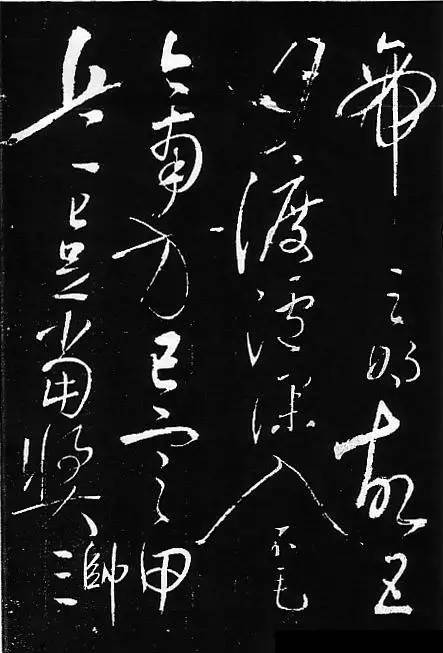 帝之明故五
月渡瀘深入不毛
今南方已定甲
兵已足當獎帥